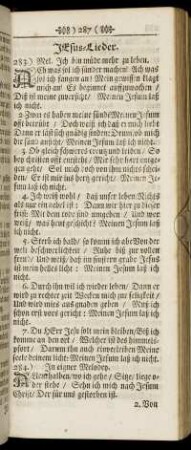 287
JEsus-Lieder.
283.) Mel. Ich bin müde mehr zu leben.
ACh was sol ich sünder machen! Ach was
sol ich fangen an! Mein gewissen klagt
mich an/ Es beginnet aufzuwachen/
Diß ist meine zuversicht/ Meinen Jesum laß
ich nicht.
2. Zwar es haben meine sünde Meinen Jesum
oft betrübt/ Doch weiß ich daß er mich liebt
Dann er läst sich gnädig finden: Drum ob mich
die sünd anficht/ Meinen Jesum laß ich nicht.
3. Ob gleich schweres creutz und leiden/ So
bey christen oft entsteht/ Mir sehr hart entgegen
geht/ Sol mich doch von ihm nichts scheiden/
Er ist mir ins hertz gericht/ Meinen
Jesum laß ich nicht.
4. Ich weiß wohl/ daß unser leben Nichts
als nur ein nebel ist: Dann wir hier zu dieser
frist/ Mit dem tode sind umgeben/ Und wer
weiß was heut geschicht/ Meinen Jesum laß
ich nicht.
5. Sterb ich bald/ so komm ich
welt beschwerlichkeit/ Ruhe biß zur vollen
freud/ Und weiß/ daß im finstern grabe Jesus
ist mein helles licht: Meinen Jesum laß ich
nicht.
6. Durch ihn will ich wieder leben/ Dann er
wird zu rechter zeit Wecken mich zur seligkeit/
Und wird mirs aus gnaden geben/ Muß ich
schon erst vors gericht: Meinen Jesum laß ich
nicht.
7. Du HErr Jesu solt mein bleiben/ Biß ich
komme an den ort/ Welcher ist des himmels
pfort/ Darum thu auch einverleiben Meine
seele deinem licht: Meinen Jesum laß ich nicht.
284.) In eigner Melodey.
ALlenthalben/ wo ich gehe/ Sitze/ liege oder
stehe/ Sehn ich mich nach Jesum
Christ/ Der für uns gestorben ist.
2. Von